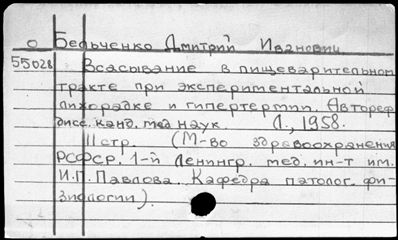 О Бельченко Дмитрий Иванович
55028 Всасывание в пищеварительном
тракте при экспериментальной
лихорадке и гипертермии. Автореф
дисс. канд. мед наук. Л., 1958.
11 стр. (М-во здравоохранения
РСФСР. 1-й Ленингр. мед. ин-т им.
И.П. Павлова. Кафедра патолог. фи-
зиологии).